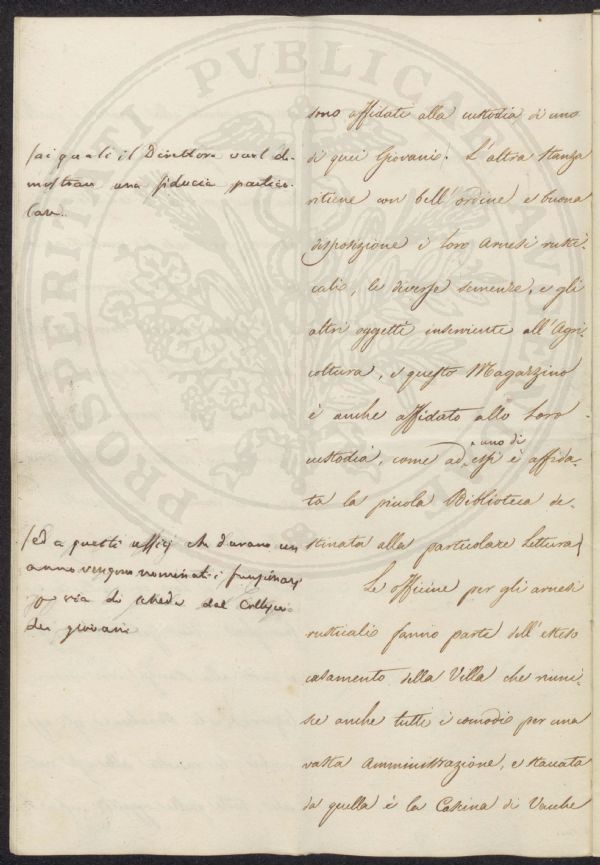 sono affidate alla custodia di uno
di quei Giovani. L'altra stanza
ritiene con bell'ordine, e buona
disposizione i loro Arnesi rusti-
cali, le diverse semenze, e gli
altri oggetti inservienti all'Agri-
coltura, e questo Magazzino
è anche affidato alla loro
custodia, come ad uno di essi è affida-
ta la piccola Biblioteca de-
stinata alla particolare Lettura
Le officine per gli arnesi
rusticali fanno parte dell'istesso
casamento della Villa che riuni-
sce anche tutti i comodi per una
vasta Amministrazione, e staccata
da quella è la Cascina di Vacche
/ ai quali il Direttore vuol di-
mostrare una fiducia partico-
lare.
/ ed a questi uffizj che durano un
anno vengono nominati i funzionarj
per via di schede dal Collegio
dei giovani
PROSPERITATI PVBLICAE AVGENDAE